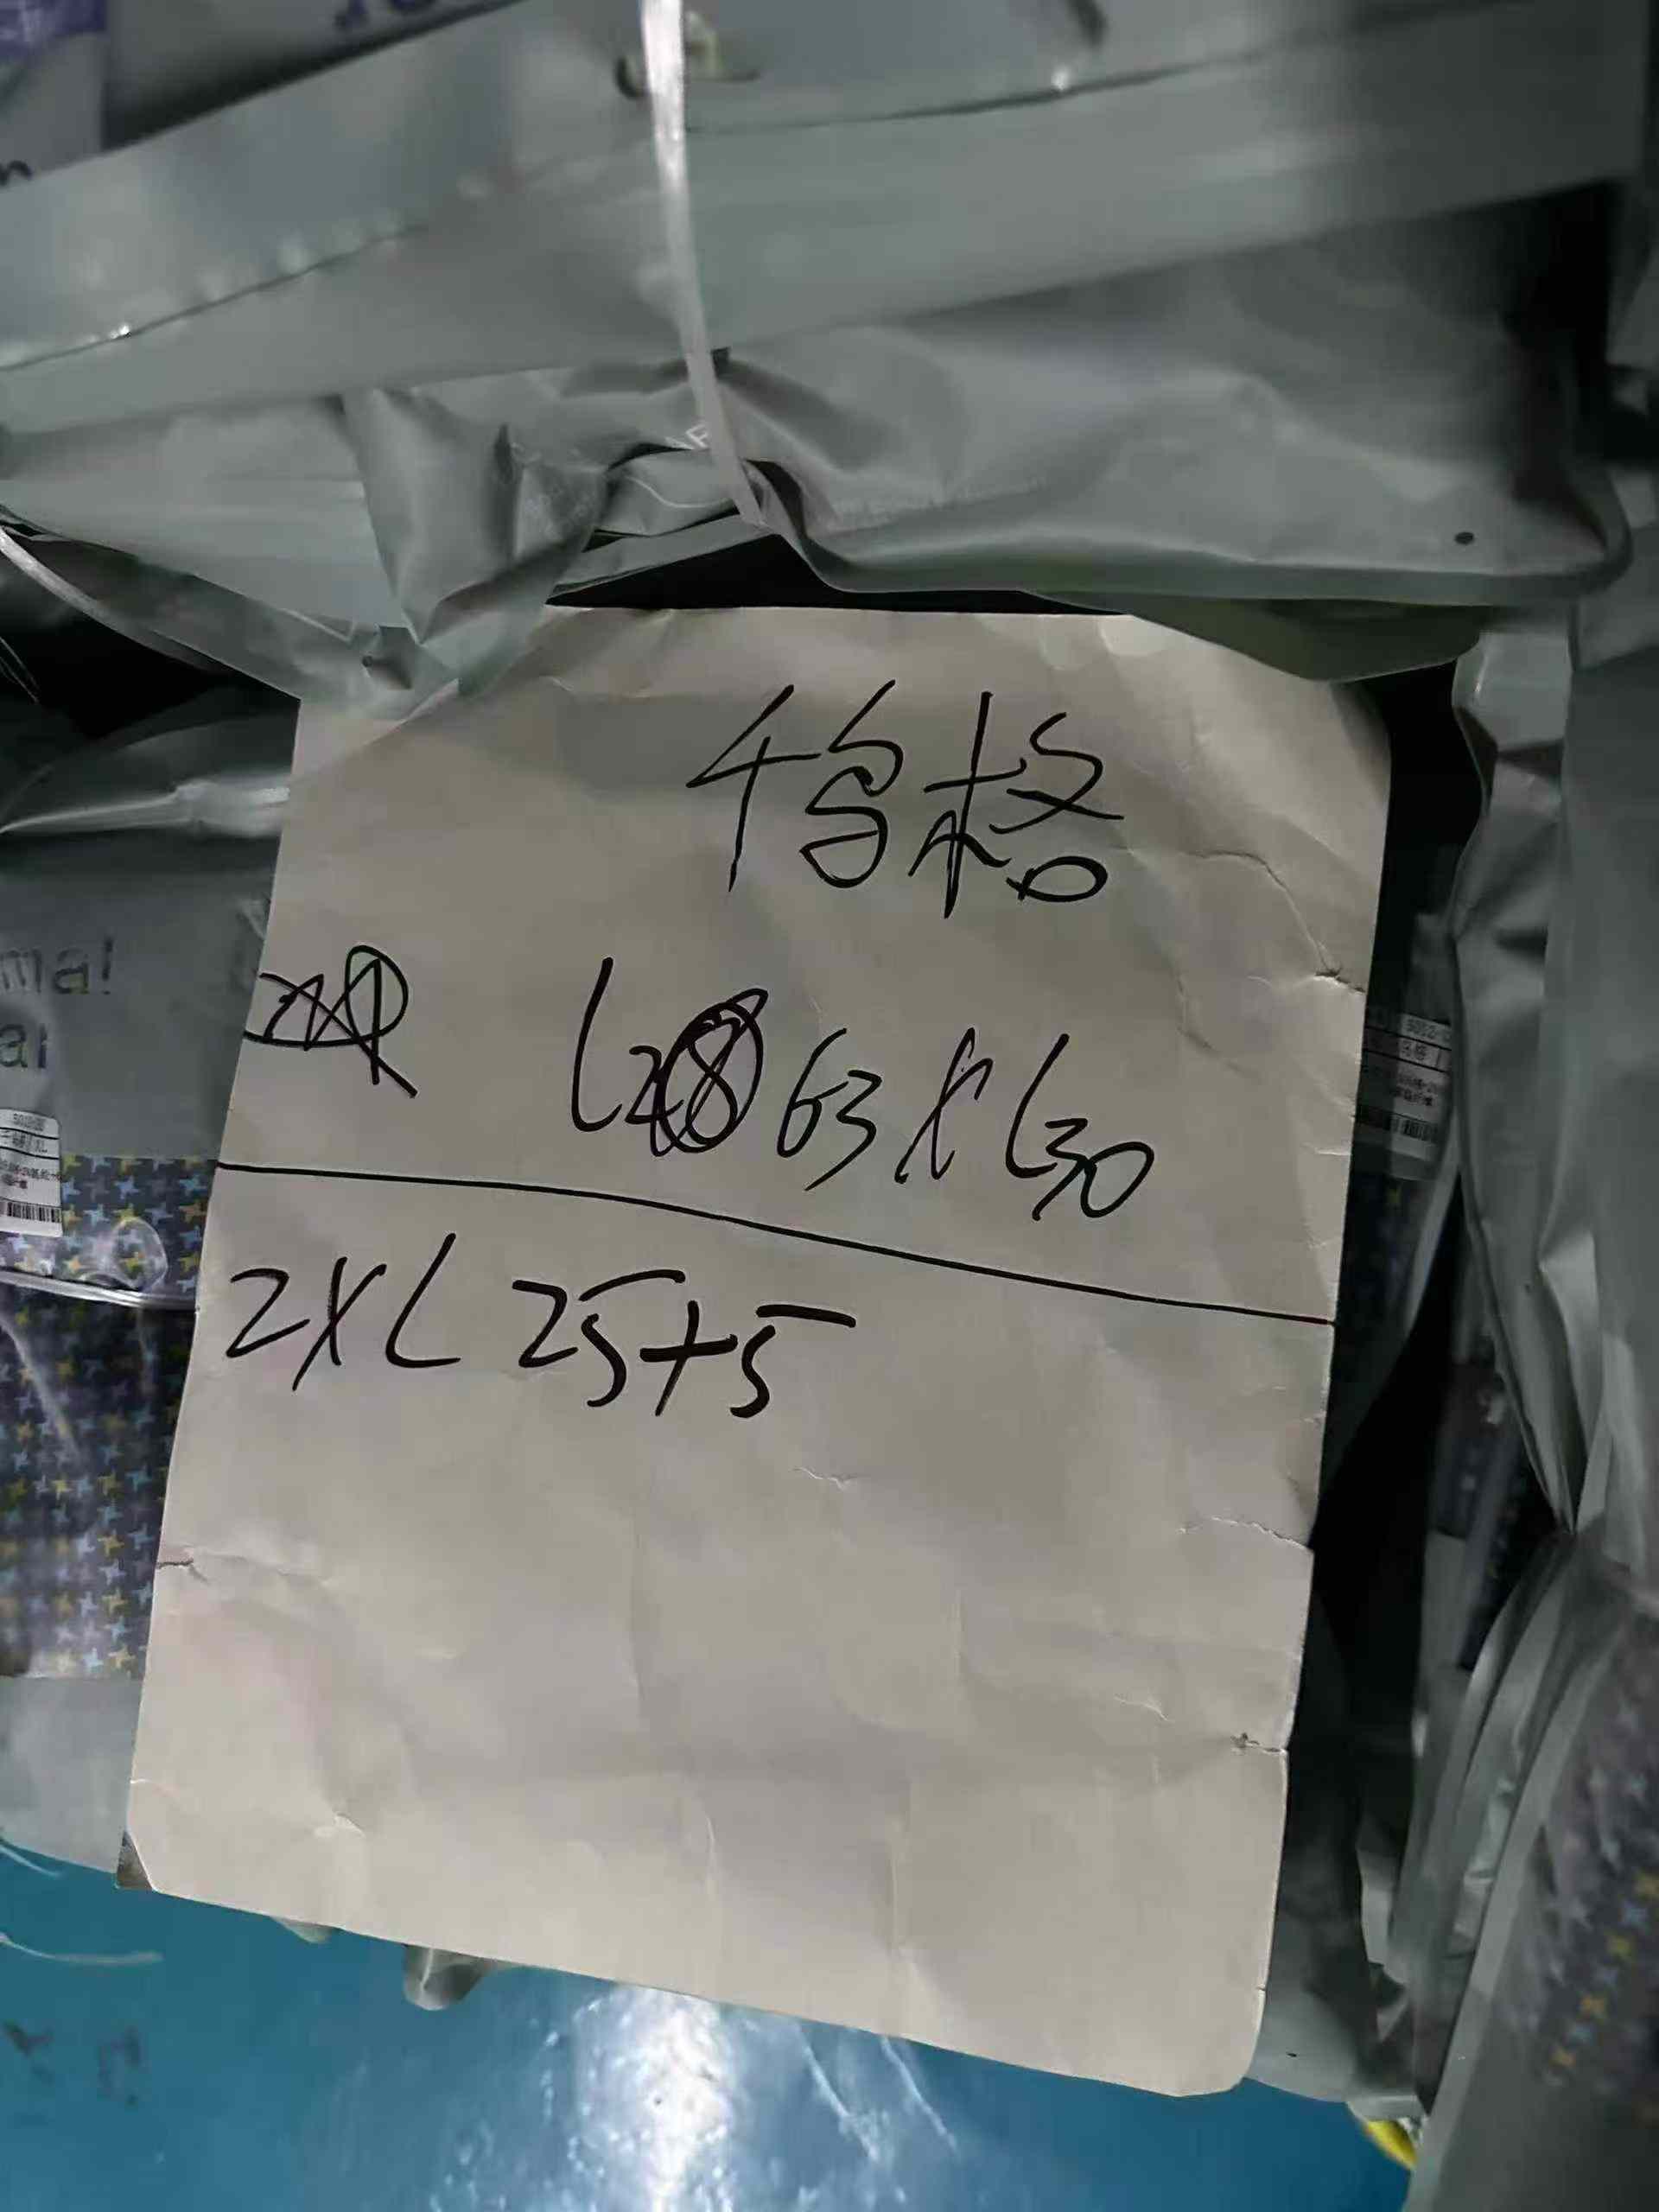 千鸟格
L 63 XL30
2XL 25+5
mal